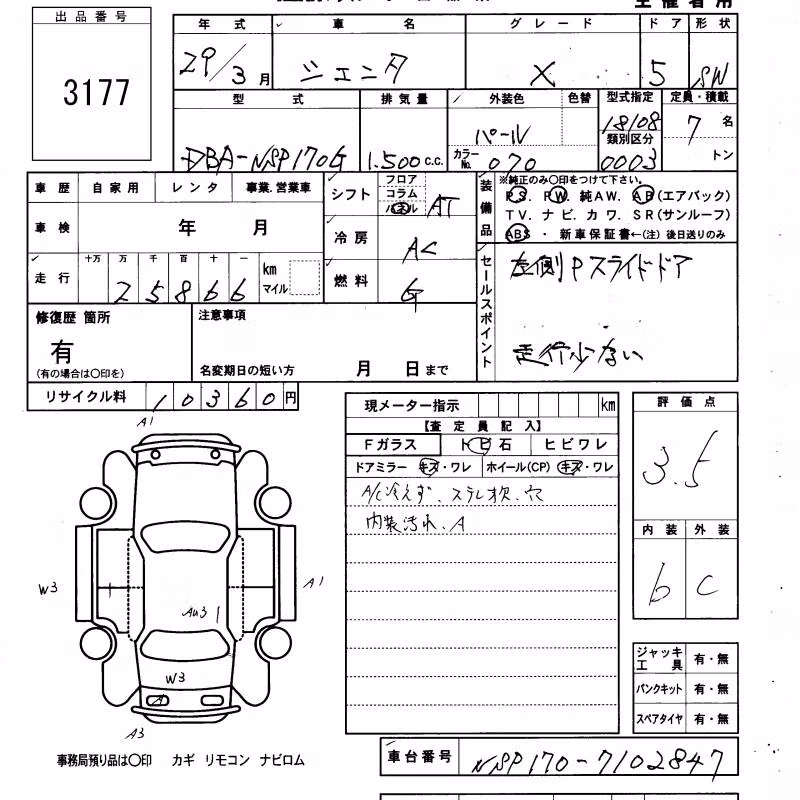 出品番号
3177
年式 車名 グレード ドア 形状
29/3月 シエンタ X 5 SW
型式 排気量 外装色 色替 型式指定 定員・積載
DBA-NSP170G 1.500c.c. パール カラーNo. 070 18108 類別区分 0003 7名 トン
車歴 自家用 レンタ 事業.営業車
車検 年 月
走行 十万 万 千 百 十 一 km マイル
25866
シフト フロア コラム ハネル AT
冷房 AC
燃料 G
装備品
※純正のみ〇印をつけて下さい。
PS. PW. 純AW. AB(エアバック)
TV. ナビ. カワ. SR(サンルーフ)
ABS ・ 新車保証書←(注)後日送りのみ
セールスポイント
左側Pスライドドア
走行少ない
修復歴 箇所
有
(有の場合は〇印を)
注意事項
名変期日の短い方 月 日まで
リサイクル料 10360円
現メーター指示 km
【査定員記入】
Fガラス トビ石 ヒビワレ
ドアミラー キズ・ワレ ホイール(CP) キズ・ワレ
A/C冷えず、ステレオ欠、穴
内装汚れ、A
評価点
3.5
内装 外装
b C
A1
W3
A1
W3
A
A3
ジャッキ工具 有・無
パンクキット 有・無
スペアタイヤ 有・無
事務局預り品は〇印 カギ リモコン ナビロム
車台番号 NSP170-7102847